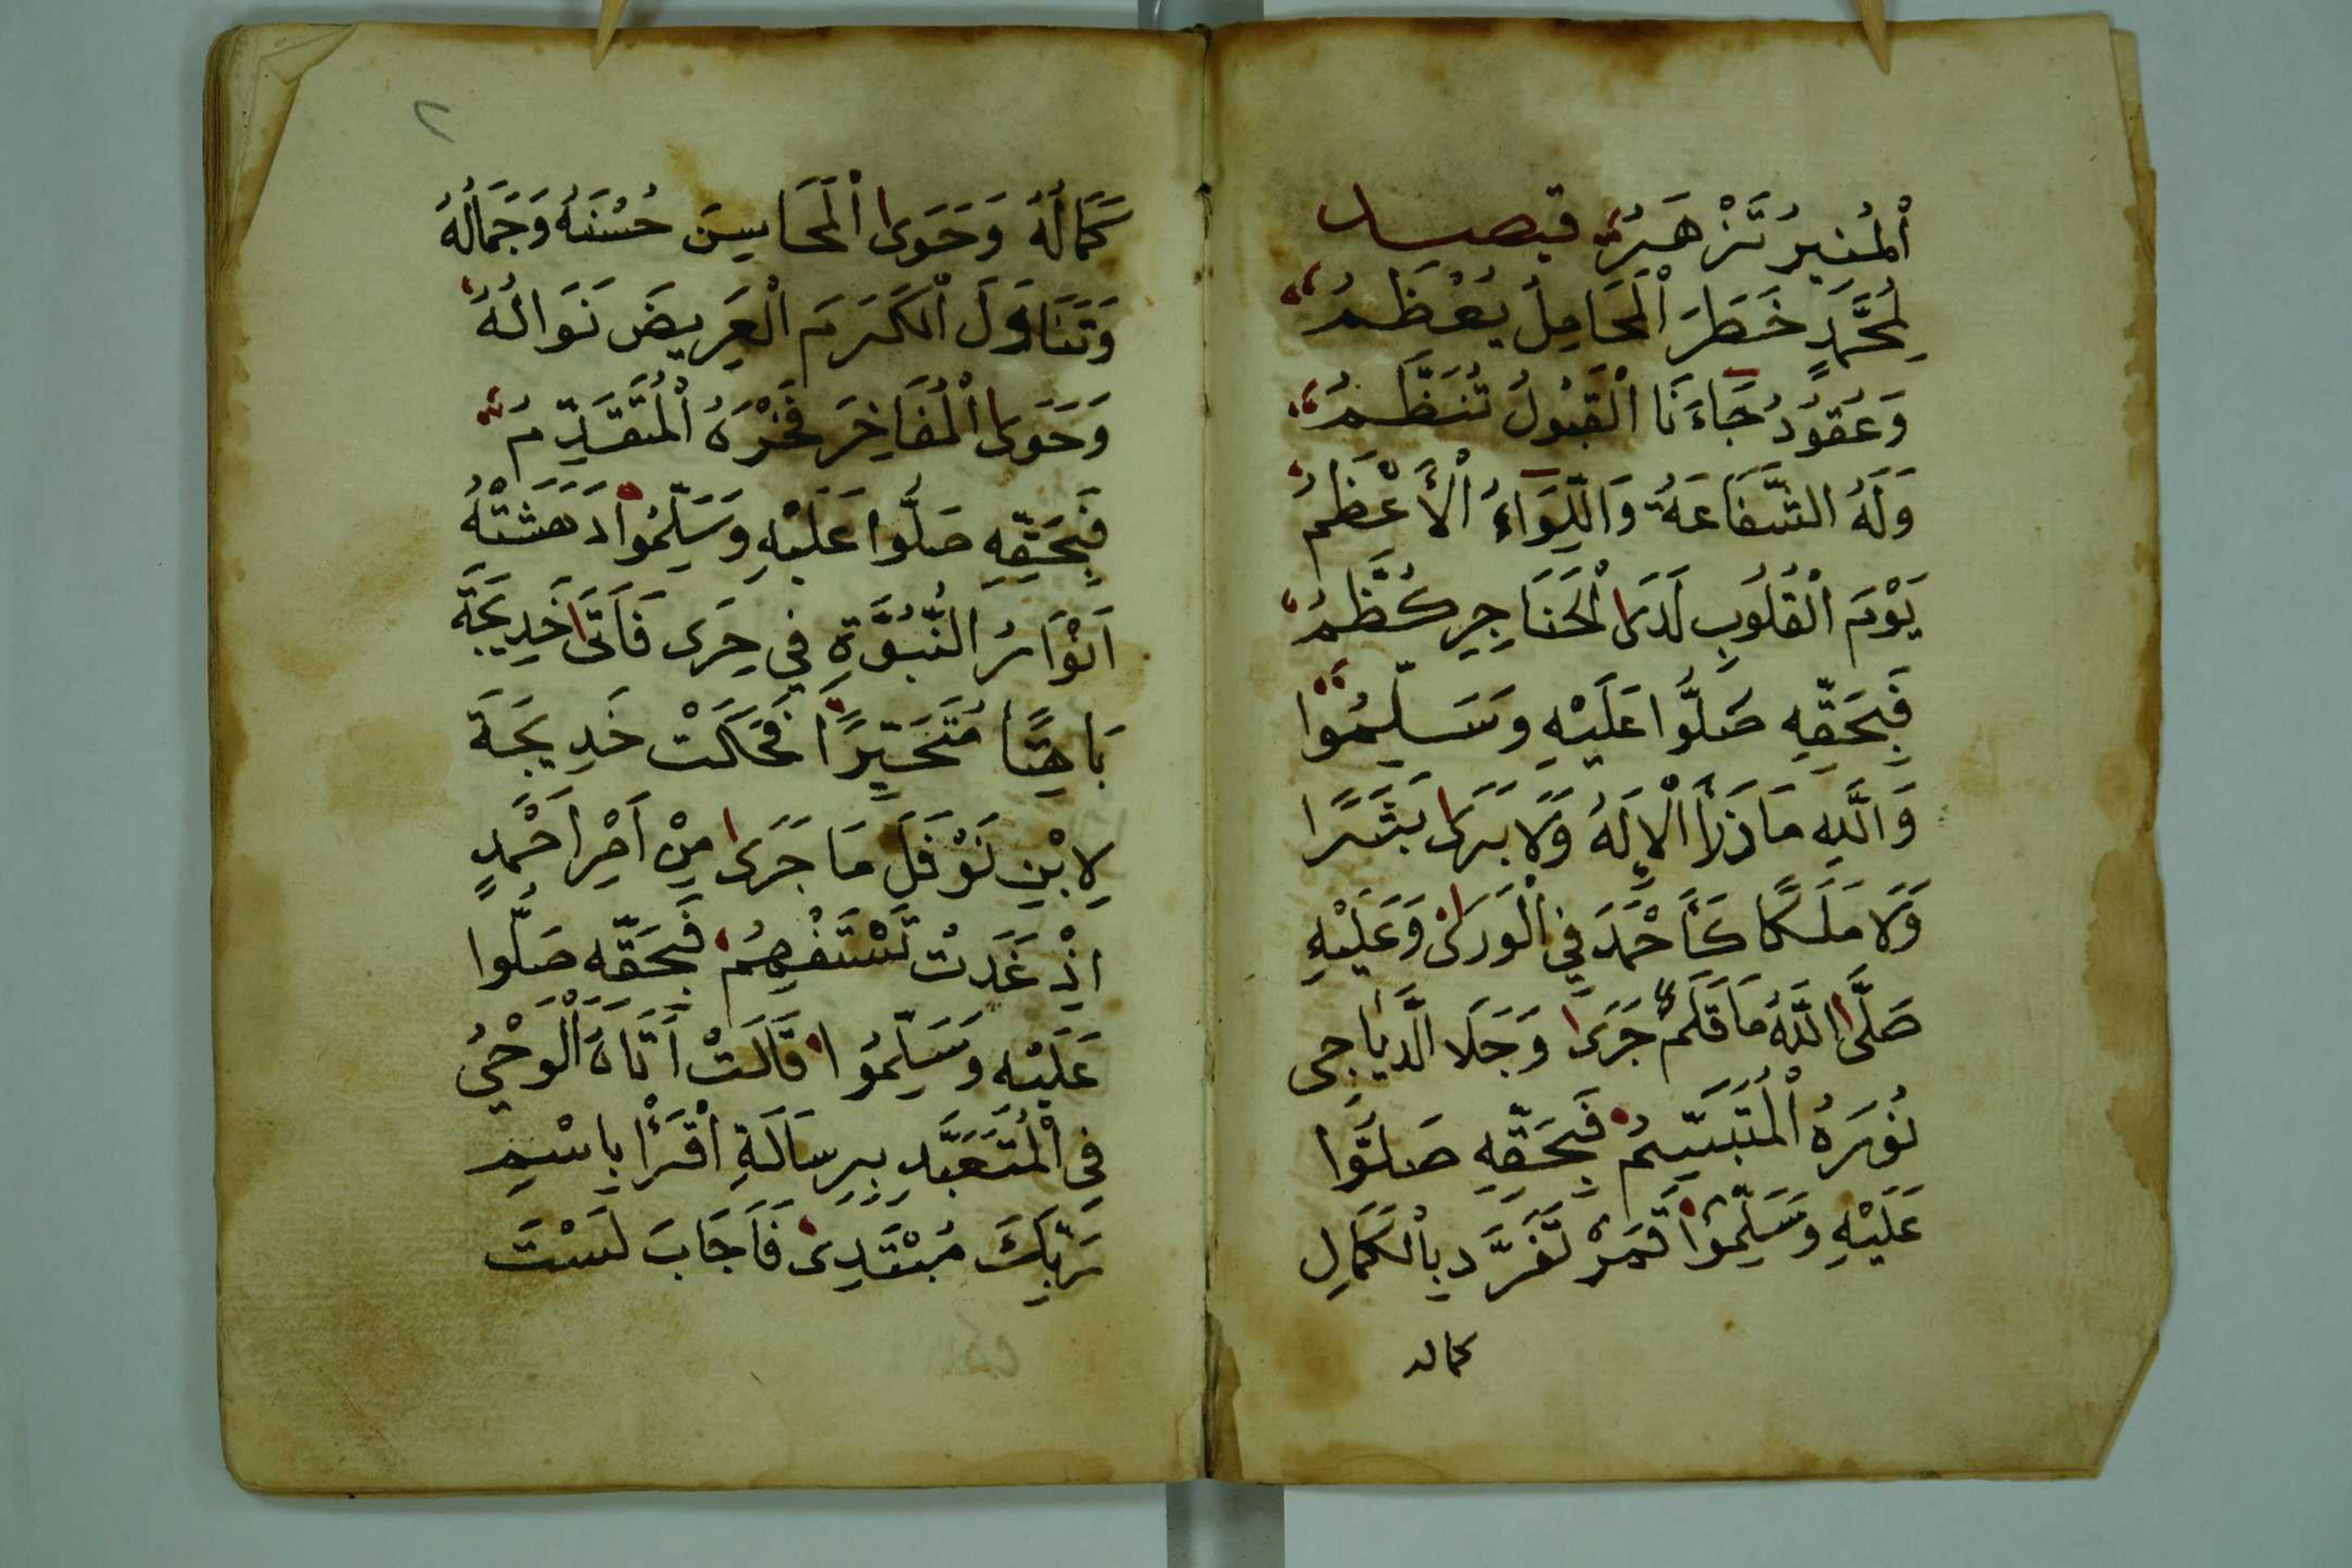 اْلمُنِيرُ تَزْهَرُ قبصيد
لِمُحَمَّدٍ خَطَرَ اْلمَحَامِلُ يُعْظَمُ
وَعُقُودُ جَاءَنَا اْلقَبُولُ تُنَظَّمُ
وَلَهُ الشَّفَاعَةُ وَاللِّوَاءُ اْلأَعْظَمُ
يَوْمَ اْلقُلُوبِ لَدَى اْلحَنَاجِرِ كُظَّمُ
فَبِحَقِّهِ صَلُّوا عَلَيْهِ وَسَلِّمُوا
وَاللَّهِ مَا ذَرَأَ اْلإِلَهُ وَلَا بَرَى بَشَرًا
وَلَا مَلَكًا كَأَحْمَدَ فِي اْلوَرَى وَعَلَيْهِ
صَلَّى اللَّهُ مَا قَلَمٌ جَرَى وَجَلَا الدَّيَاجِي
نُورَهُ اْلمُتَبَسِّمُ فَبِحَقِّهِ صَلُّوا
عَلَيْهِ وَسَلِّمُوا قَمَرٌ تَفَرَّدَ بِاْلكَمَالِ
كماله
٢
كَمَالُهُ وَحَوَى اْلمَحَاسِنَ حُسْنَهُ وَجَمَالُهُ
وَتَنَاوَلَ اْلكَرَمَ اْلعَرِيضَ نَوَالُهُ
وَحَوَى اْلمُفَاخِرَ فَخْرَهُ اْلمُتَقَدِّمُ
فَبِحَقِّهِ صَلُّوا عَلَيْهِ وَسَلِّمُوا دَهَشَتْهُ
اَنْوَارُ النُّبُوَّةِ فِي حِرَى فَاَتَى خَدِيجَةَ
بَاهِتًا مُتَحَيِّرًا فَحَكَتْ خَدِيجَةَ
لِابْنِ نَوْفَلَ مَا جَرَى مِنْ اَمْرِ اَحْمَدٍ
اِذْ غَدَتْ تَسْتَفْهِمُ فَبِحَقِّهِ صَلُّوا
عَلَيْهِ وَسَلِّمُوا قَالَتْ أَتَاهُ اْلوَحْيُ
فِي اْلمُتَعَبَّدِ بِرِسَالَةِ اقْرَأْ بِاسْمِ
رَبِّكَ مُبْتَدِى فَاَجَابَ لَسْتَ